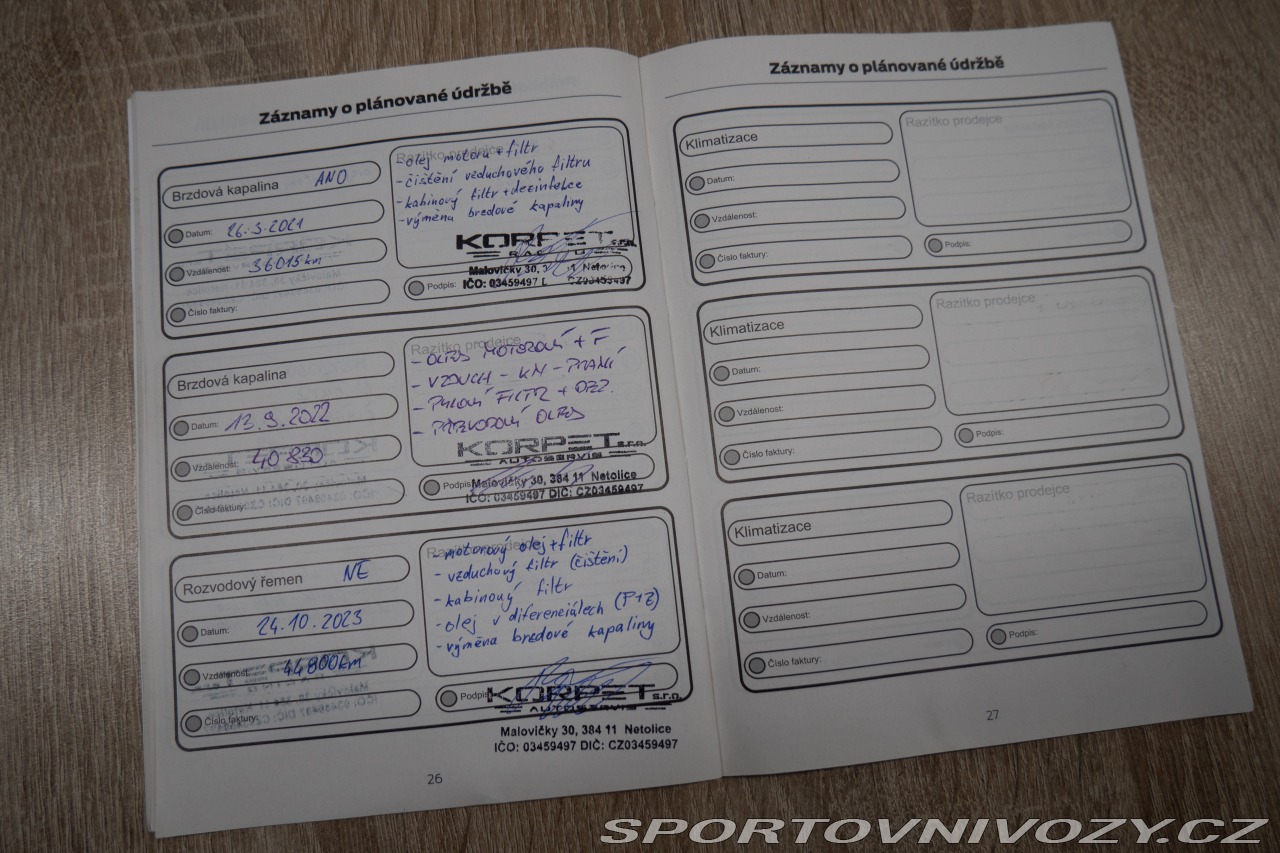 Záznamy o plánované údržbě
Brzdová kapalina ANO
Datum: 26.3.2021
Vzdálenost: 36015km
Číslo faktury:
Razítko prodejce
- olej motoru + filtr
- čištění vzduchového filtru
- kabinový filtr + dezinfekce
- výměna brzdové kapaliny
KORPET s.r.o.
Malovičky 30, 11 Netolice
IČO: 03459497 CZ03459497
Podpis:
Brzdová kapalina
Datum: 13.9.2022
Vzdálenost: 40 830
Číslo faktury:
Razítko prodejce
- OLEJ MOTOROVÝ + F
- VZDUCH - KN - PRANÍ
- PYLOVÝ FILTR + DEZ.
- PŘEVODOVÝ OLEJ
KORPET s.r.o.
AUTOSERVIS
Podpis:
Malovičky 30, 384 11 Netolice
IČO: 03459497 DIČ: CZ03459497
Rozvodový řemen NE
Datum: 24.10.2023
Vzdálenost: 44800km
Číslo faktury:
Razítko prodejce
- motorový olej + filtr
- vzduchový filtr (čištění)
- kabinový filtr
- olej v diferenciálech (P+Z)
- výměna brzdové kapaliny
Podpis:
KORPET s.r.o.
AUTOSERVIS
Malovičky 30, 384 11 Netolice
IČO: 03459497 DIČ: CZ03459497
26
Záznamy o plánované údržbě
Klimatizace
Datum:
Vzdálenost:
Číslo faktury:
Razítko prodejce
Podpis:
Klimatizace
Datum:
Vzdálenost:
Číslo faktury:
Razítko prodejce
Podpis:
Klimatizace
Datum:
Vzdálenost:
Číslo faktury:
Razítko prodejce
Podpis:
27
SPORTOVNIVOZY.CZ